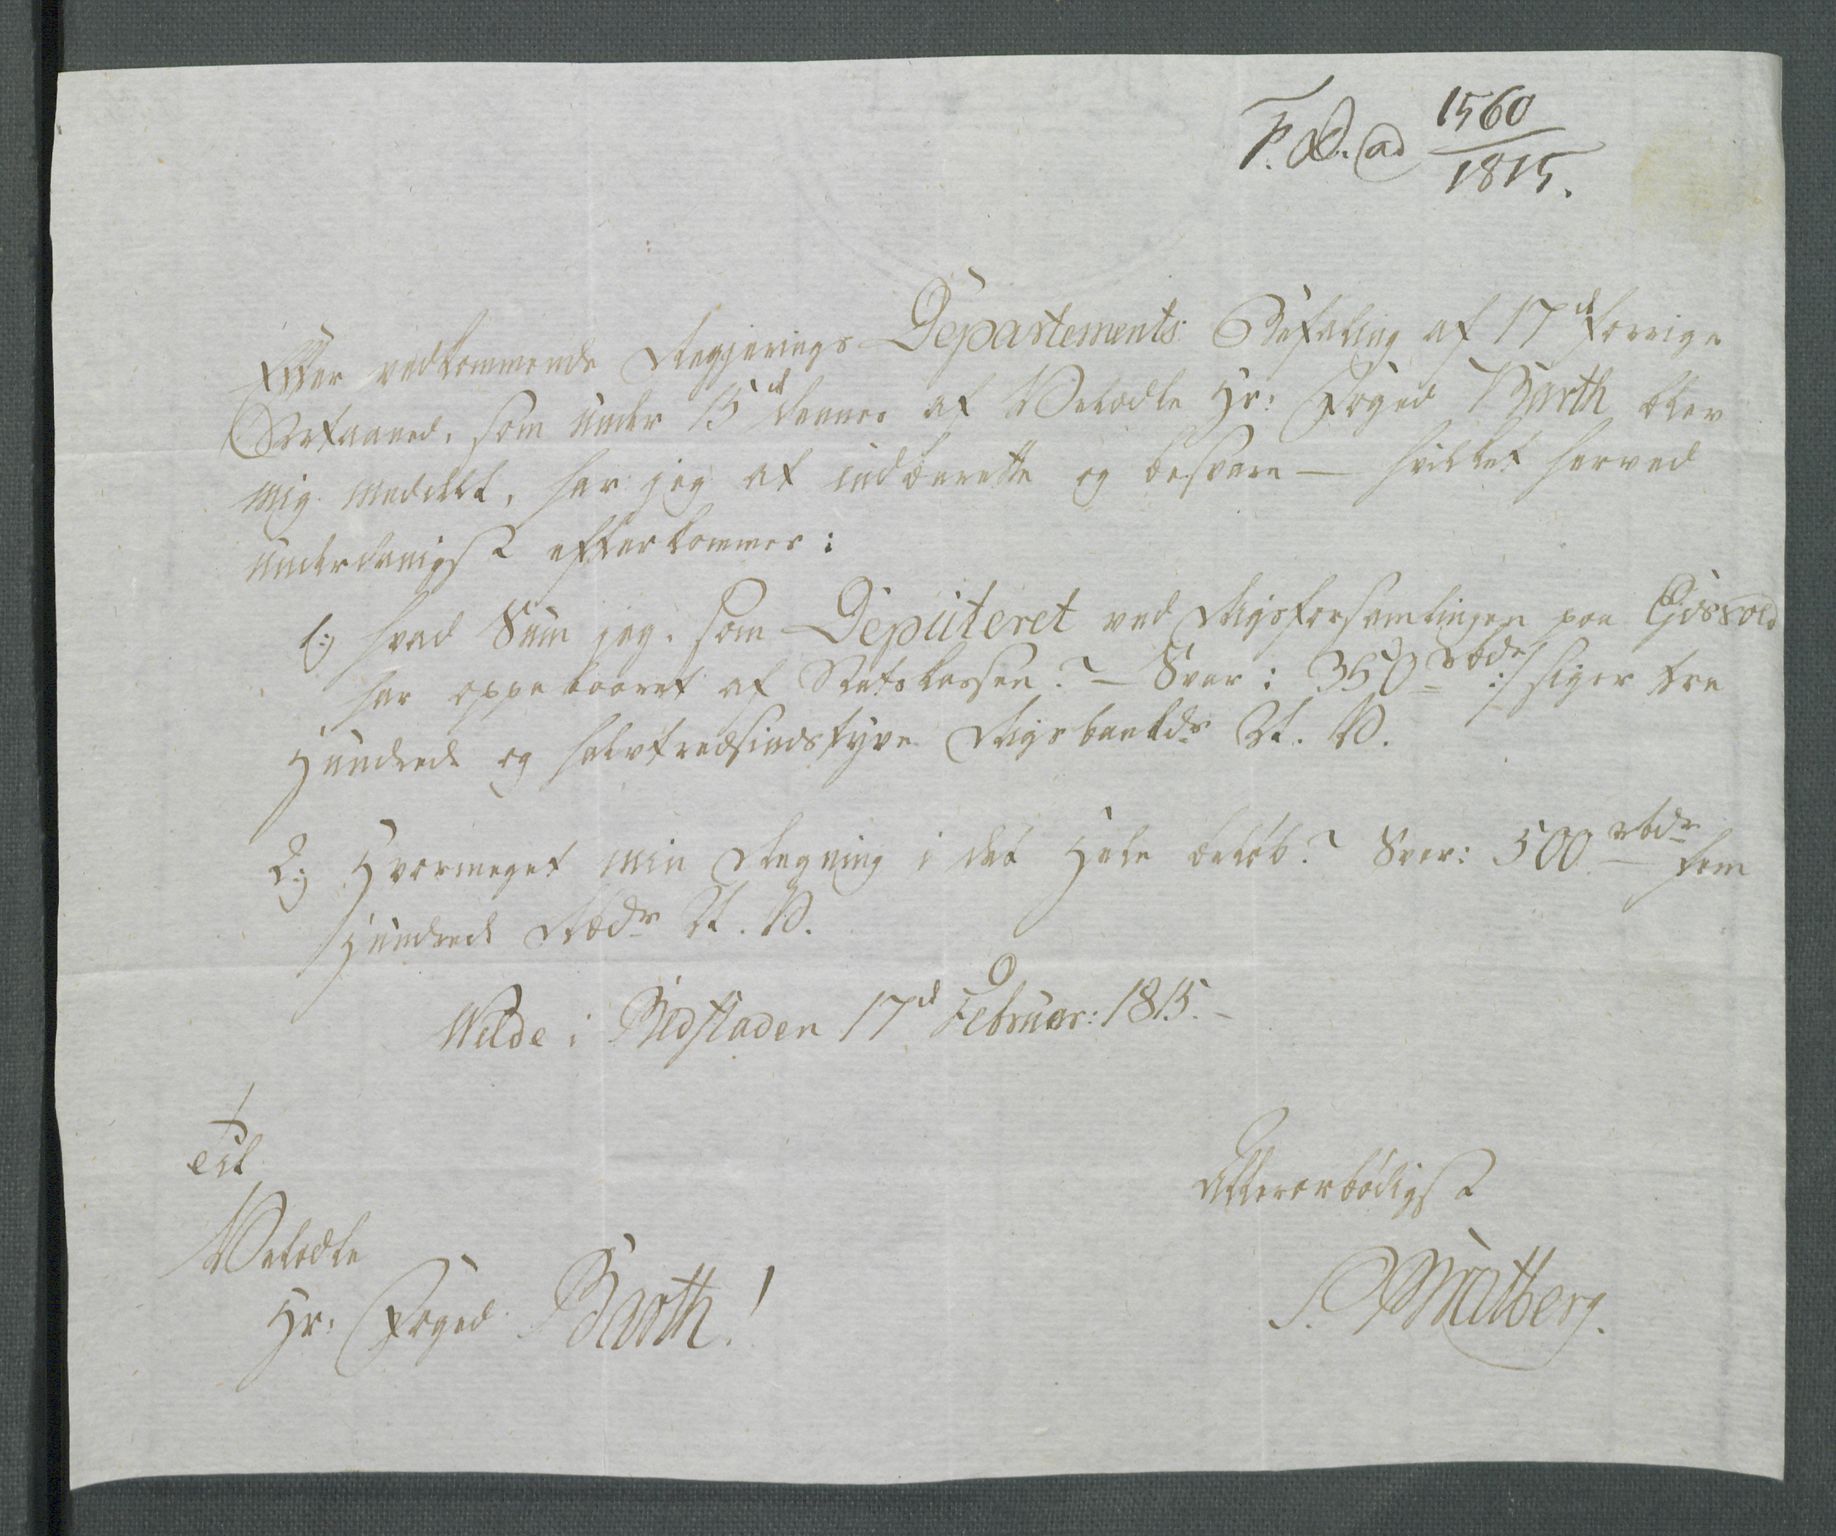 F. D. ad 1560
1815.
Efter vedkommende Regjerings Departements Befaling af 17d forrige
Maaned, som under 15d dennes af Velædle Hr: Foged Barth blev
mig meddelt, har jeg at indberette og besvare — hvilket herved
underdanigst efterkommes:
1:) hvad Sum jeg, som Deputeret ved Rigsforsamlingen paa Eidsvold
har oppebaaret af Statskassen? — Svar: 350 rbdr :/ siger tre
Hundrede og halvtredsindstyve Rigsbankdr N. V.
2:) Hvormeget min Regning i det Hele beløb? Svar: 500 rbdr fem
Hundrede Rbdr N. V.
Welde i Bedstaden 17d Februar: 1815. –
Til
Velædle
Hr: Foged Barth!
Allerærbødigst
S. Matberg.